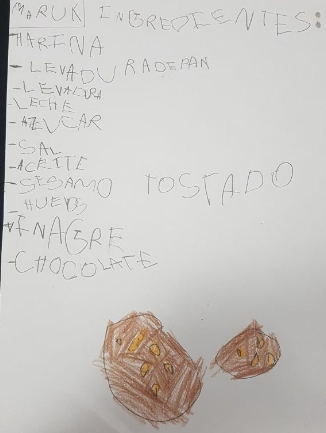 MARUK INGREDIENTES:
HARINA
- LEVADURADEPAN
- LEVADURA
- LECHE
- AZUCAR
- SAL
- ACEITE
- SESAMO TOSTADO
- HUEVOS
VINAGRE
- CHOCOLATE